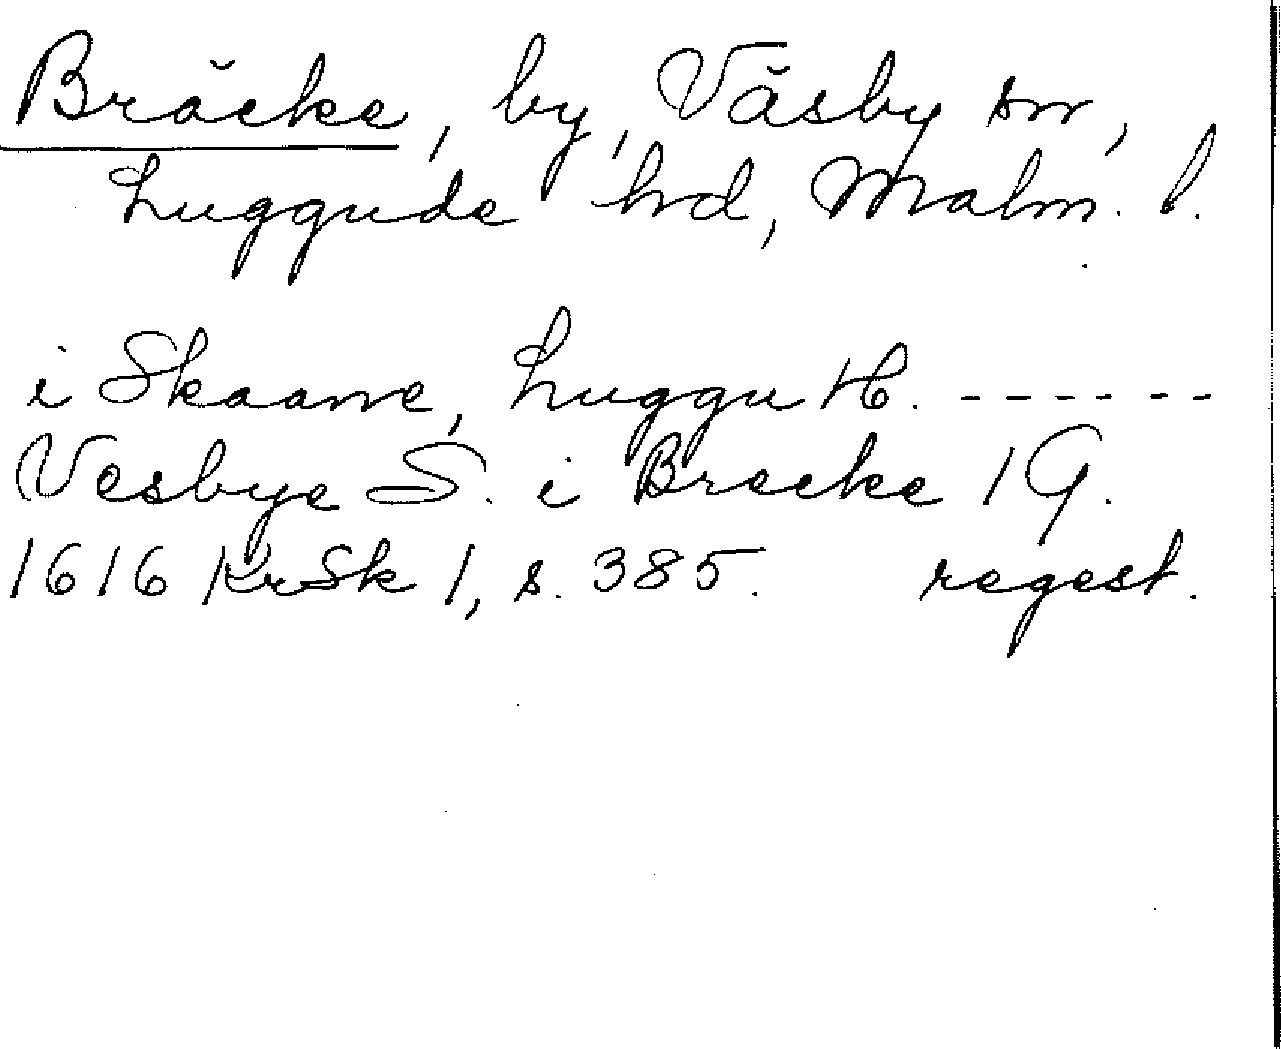 Bräcke, by, Väsby sn,
Luggude hd, Malm. l.
i Skaane, Luggu H. ------
Vesbye S. i Brecke 1 G.
1616 KrSk 1, s. 385. regest.